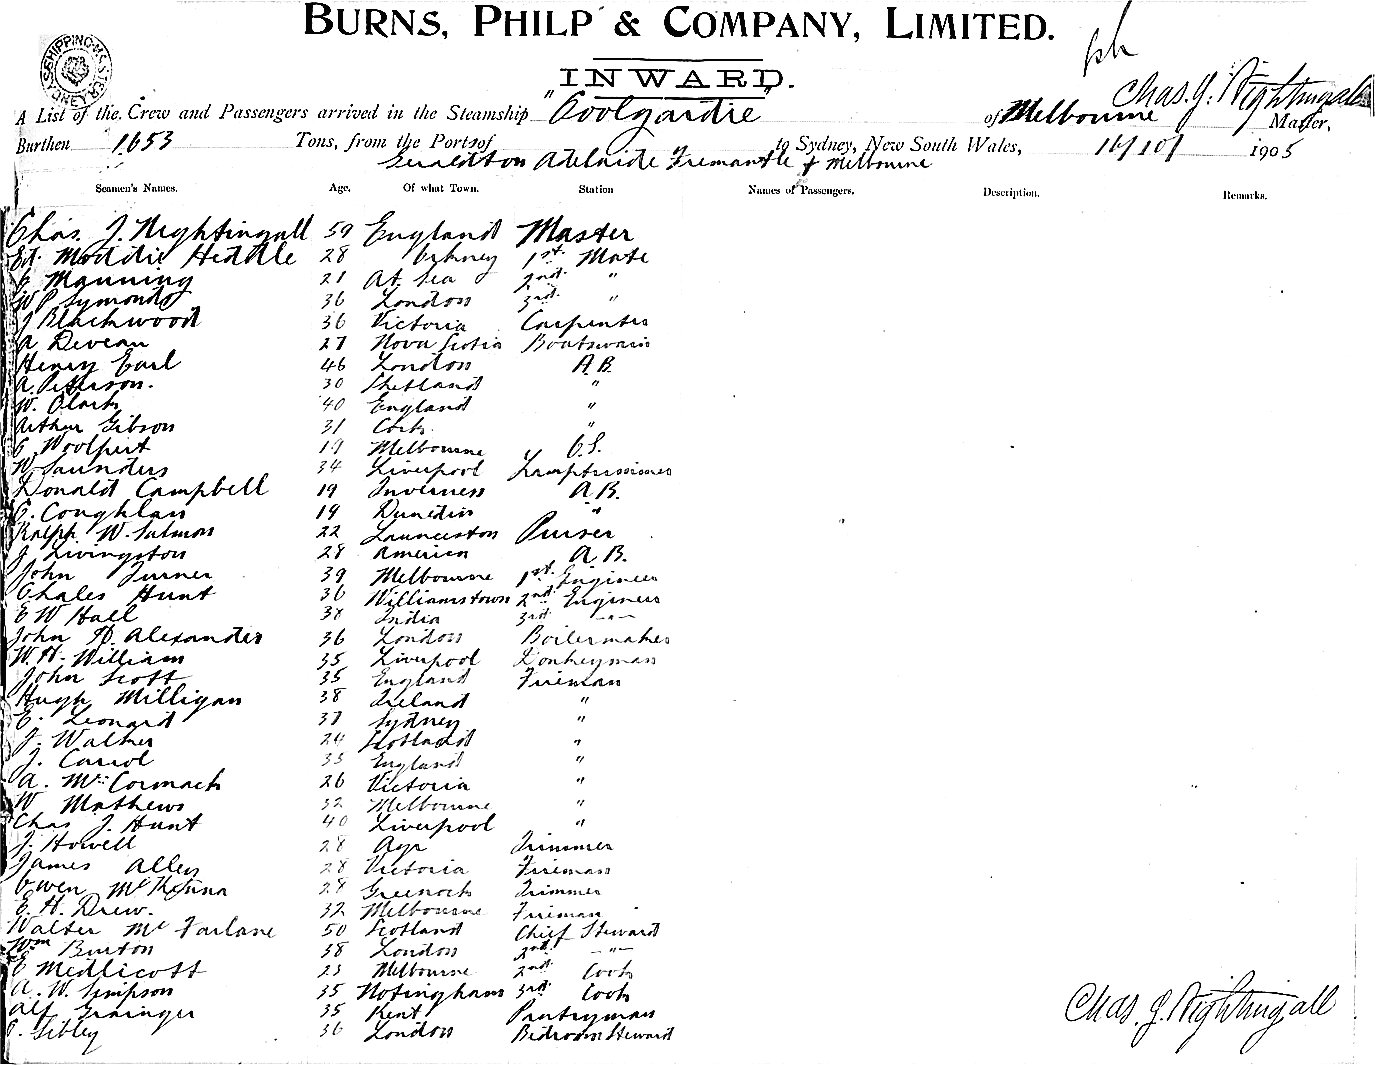 BURNS, PHILP & COMPANY, LIMITED.
INWARD.
SHIPPING MASTER SYDNEY
A List of the Crew and Passengers arrived in the Steamship "Coolgardie" of Melbourne Chas. J. Nightingall Master,
Burthen 1653 Tons, from the Port of Geraldton Adelaide Fremantle & Melbourne to Sydney, New South Wales, 16/10/ 1905
Seamen's Names. Age. Of what Town. Station Names of Passengers. Description. Remarks.
Chas. J. Nightingall 59 England Master
Ed. Moddie Heddle 28 Orkney 1st. Mate
C Manning 21 At Sea 2nd "
W P Symonds 36 London 3rd "
J Blackwood 36 Victoria Carpenter
A Deveau 27 Nova Scotia Boatswain
Henry Earl 46 London A.B.
A. Peterson. 30 Shetland "
W. Clark 40 England "
Arthur Gibson 31 Cork "
C Woolpert 19 Melbourne O.S.
W Saunders 34 Liverpool Lamptrimmer
Donald Campbell 19 Inverness A.B.
C. Coughlan 19 Dunedin "
Ralph W. Salmon 22 Launceston Purser
J Livingston 28 America A.B.
John Turner 39 Melbourne 1st. Engineer
Chales Hunt 36 Williamstown 2nd Engineer
E W Hall 38 India 3rd —"—
John H. Alexander 36 London Boilermaker
W. H. William 35 Liverpool Donkeyman
John Scott 35 England Fireman
Hugh Milligan 38 Ireland "
E. Leonard 37 Sydney "
J. Walker 24 Scotland "
J. Carrol 33 England "
A. McCormack 26 Victoria "
W Mathews 32 Melbourne "
Chas J. Hunt 40 Liverpool "
J. Howell 28 Ayr Trimmer
James Allen 28 Victoria Fireman
Owen McKenna 28 Greenock Trimmer
E. H. Drew. 32 Melbourne Fireman
Walter McFarlane 50 Scotland Chief Steward
Wm Burton 38 London 2nd —"—
E Medlicott 23 Melbourne 2nd Cook
A. W. Simpson 35 Notingham 3rd Cook
Alf Grainger 35 Kent Pantryman
Sibley 36 London Bedroom Steward
Chas. J. Nightingall